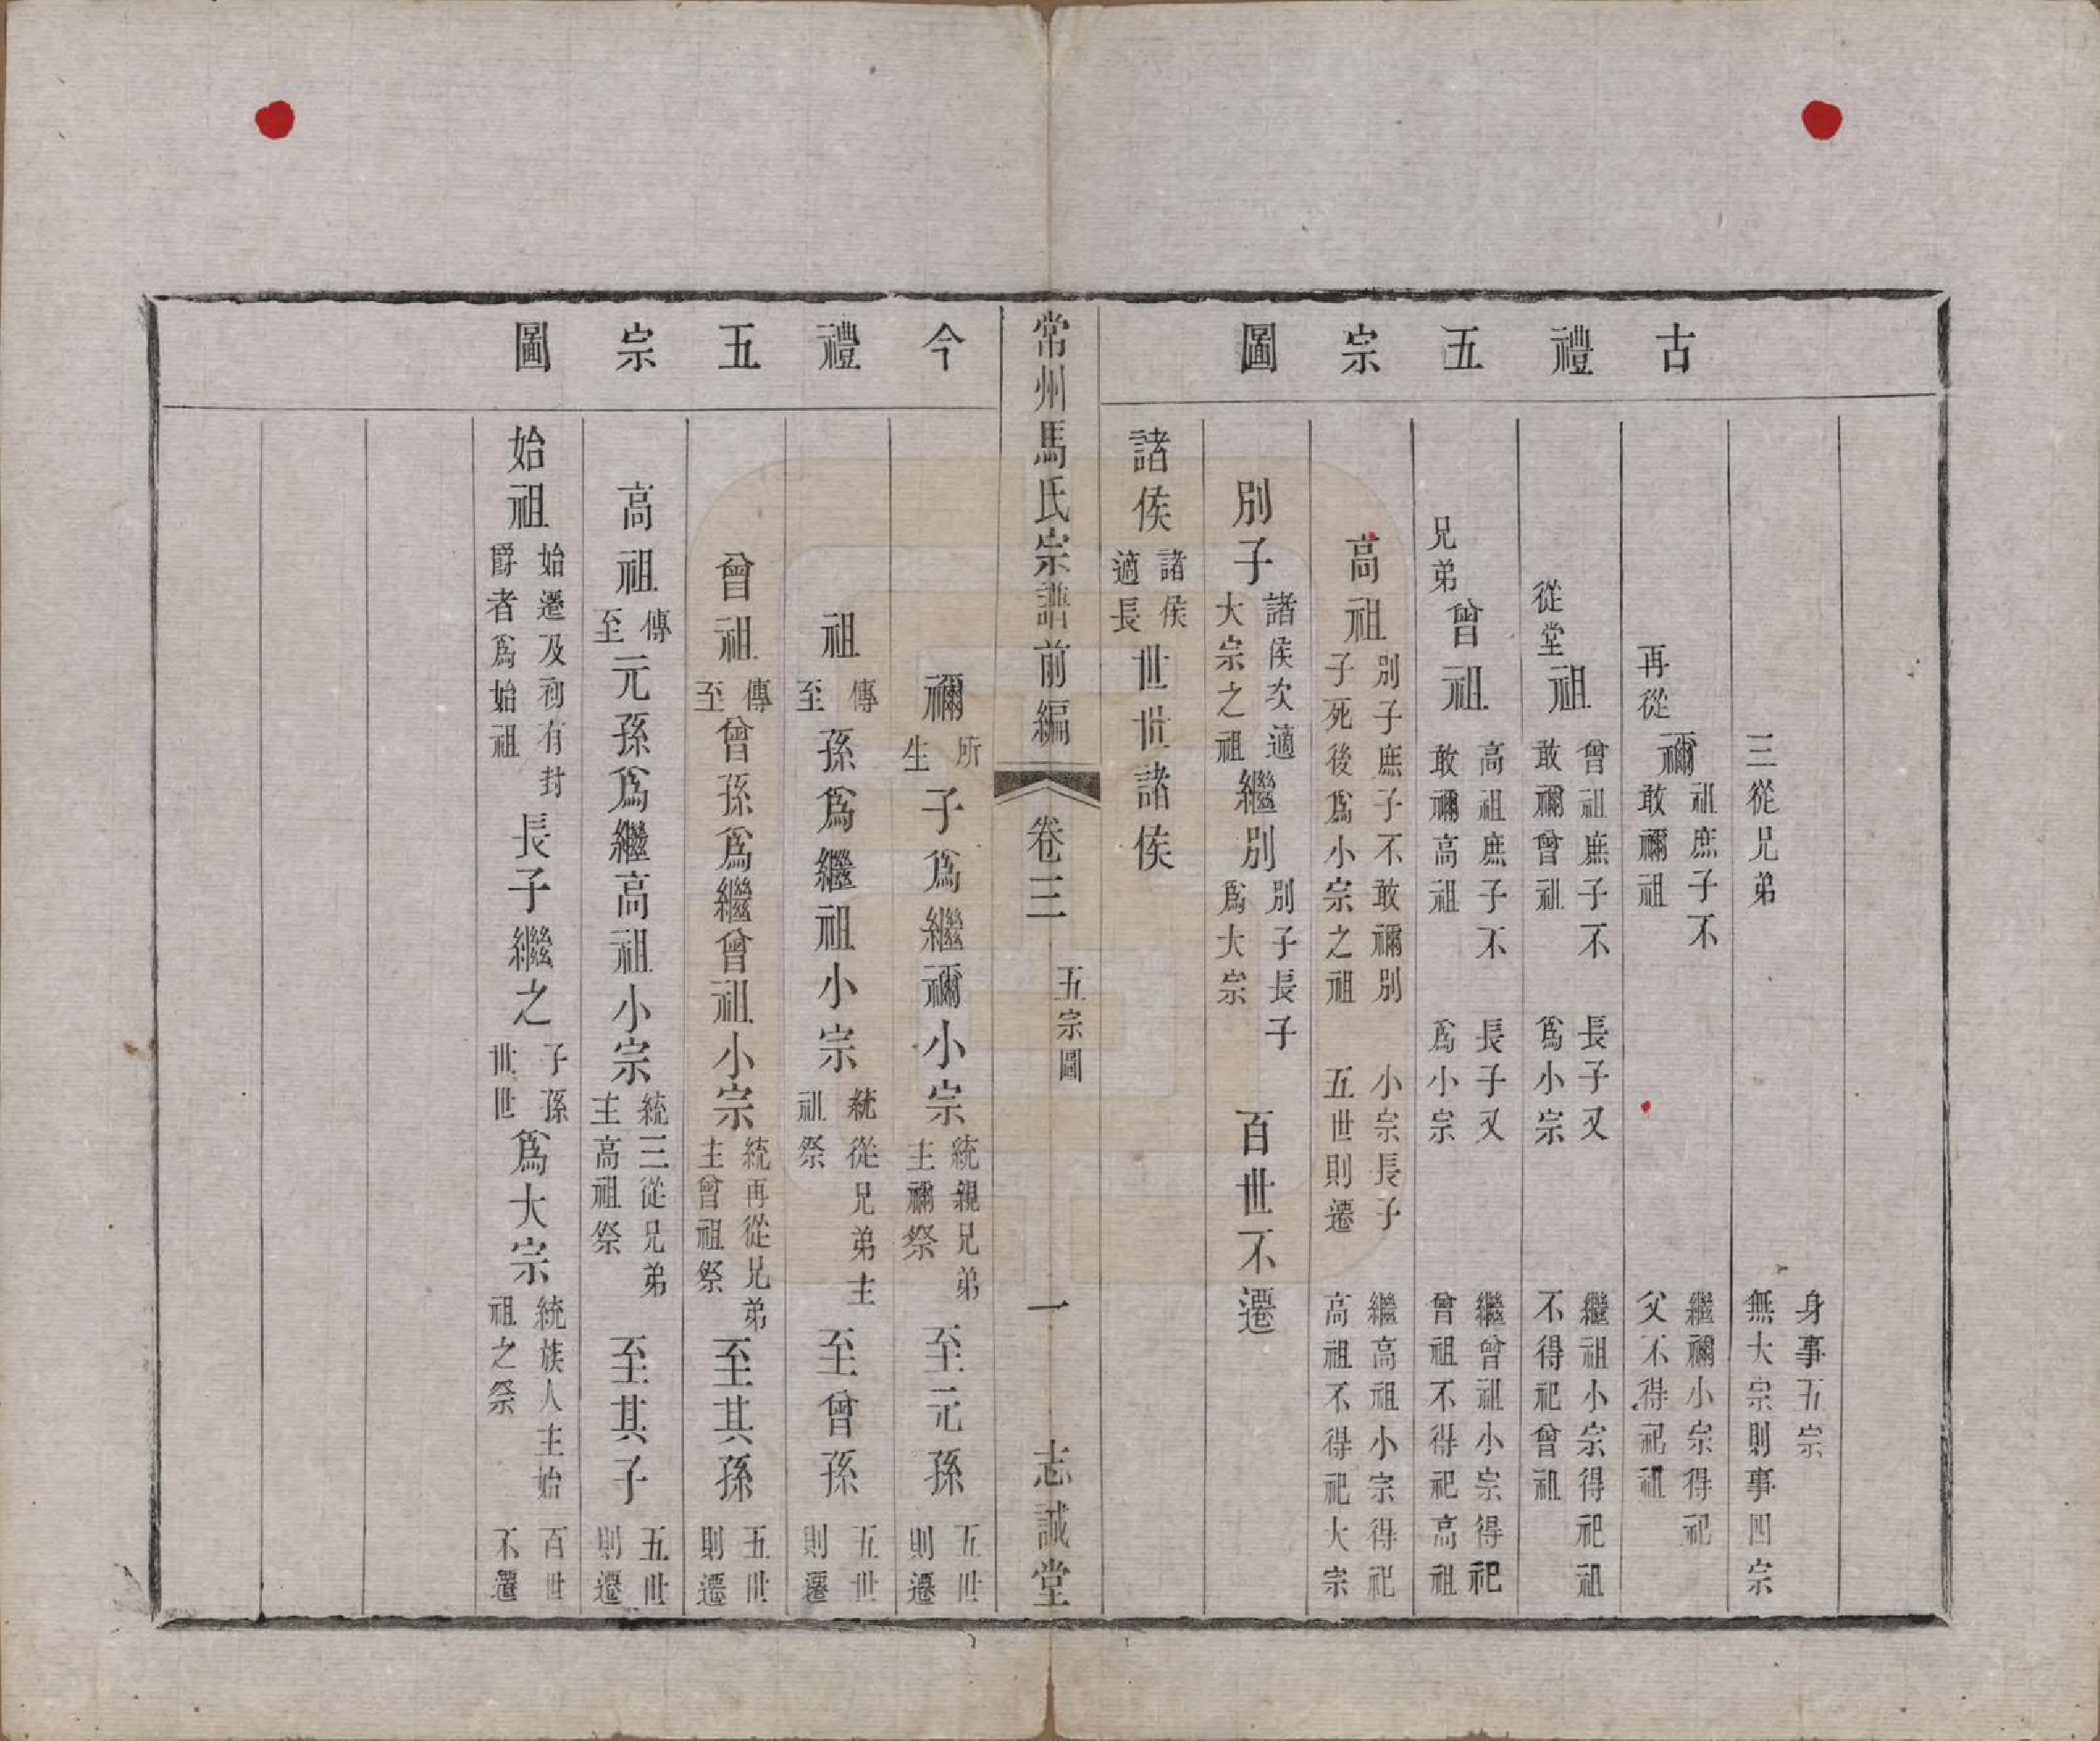 古禮五宗圖
三從兄弟 身事五宗無大宗則事四宗
再從 禰 祖庶子不敢禰祖 繼禰小宗得祀父不得祀祖
從堂 祖 曾祖庶子不敢禰曾祖 長子又爲小宗 繼祖小宗得祀祖不得祀曾祖
兄弟 曾祖 高祖庶子不敢禰高祖 長子又爲小宗 繼曾祖小宗得祀曾祖不得祀高祖
高祖 別子庶子不敢禰別子死後爲小宗之祖 小宗長子五世則遷 繼高祖小宗得祀高祖不得祀大宗
別子 諸侯次適大宗之祖 繼別 別子長子爲大宗 百世不遷
諸侯 諸侯適長 世世諸侯
常州馬氏宗譜前編 卷三 五宗圖 一 志誠堂
今禮五宗圖
禰 所生 子爲繼禰小宗 統親兄弟主禰祭 至元孫 五世則遷
祖 傳至 孫爲繼祖小宗 統從兄弟主祖祭 至曾孫 五世則遷
曾祖 傳至 曾孫爲繼曾祖小宗 統再從兄弟主曾祖祭 至其孫 五世則遷
高祖 傳至 元孫爲繼高祖小宗 統三從兄弟主高祖祭 至其子 五世則遷
始祖 始遷及初有封爵者爲始祖 長子繼之 子孫世世 爲大宗 統族人主始祖之祭 百世不遷